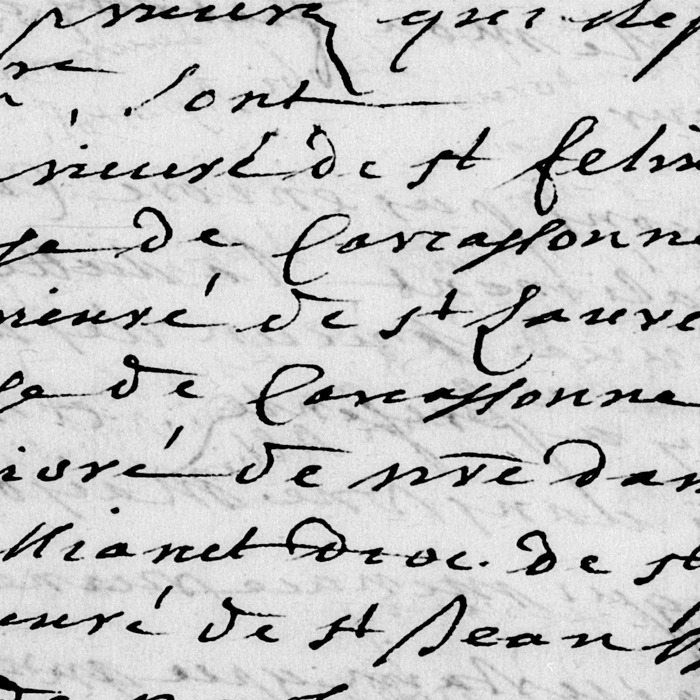 prieurez qui dep
re
, sont
rieuré de st felix
se de Carcassonne
rieuré de st Sauve
se de Carcassonne
ioré de nre dam
llianet dioc. de st
euré de st Jean